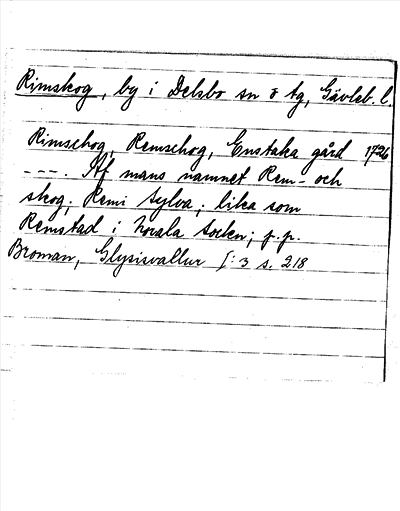 Rimskog, by i Delsbo sn o tg, Gävleb. l.
Rimschog, Remschog, Enstaka gård 1726
---. Af mans namnet Rem- och
skog; Remi sylva; lika som
Remstad i socken; p.p.
Broman, Glysisvallur I: 3 s. 218